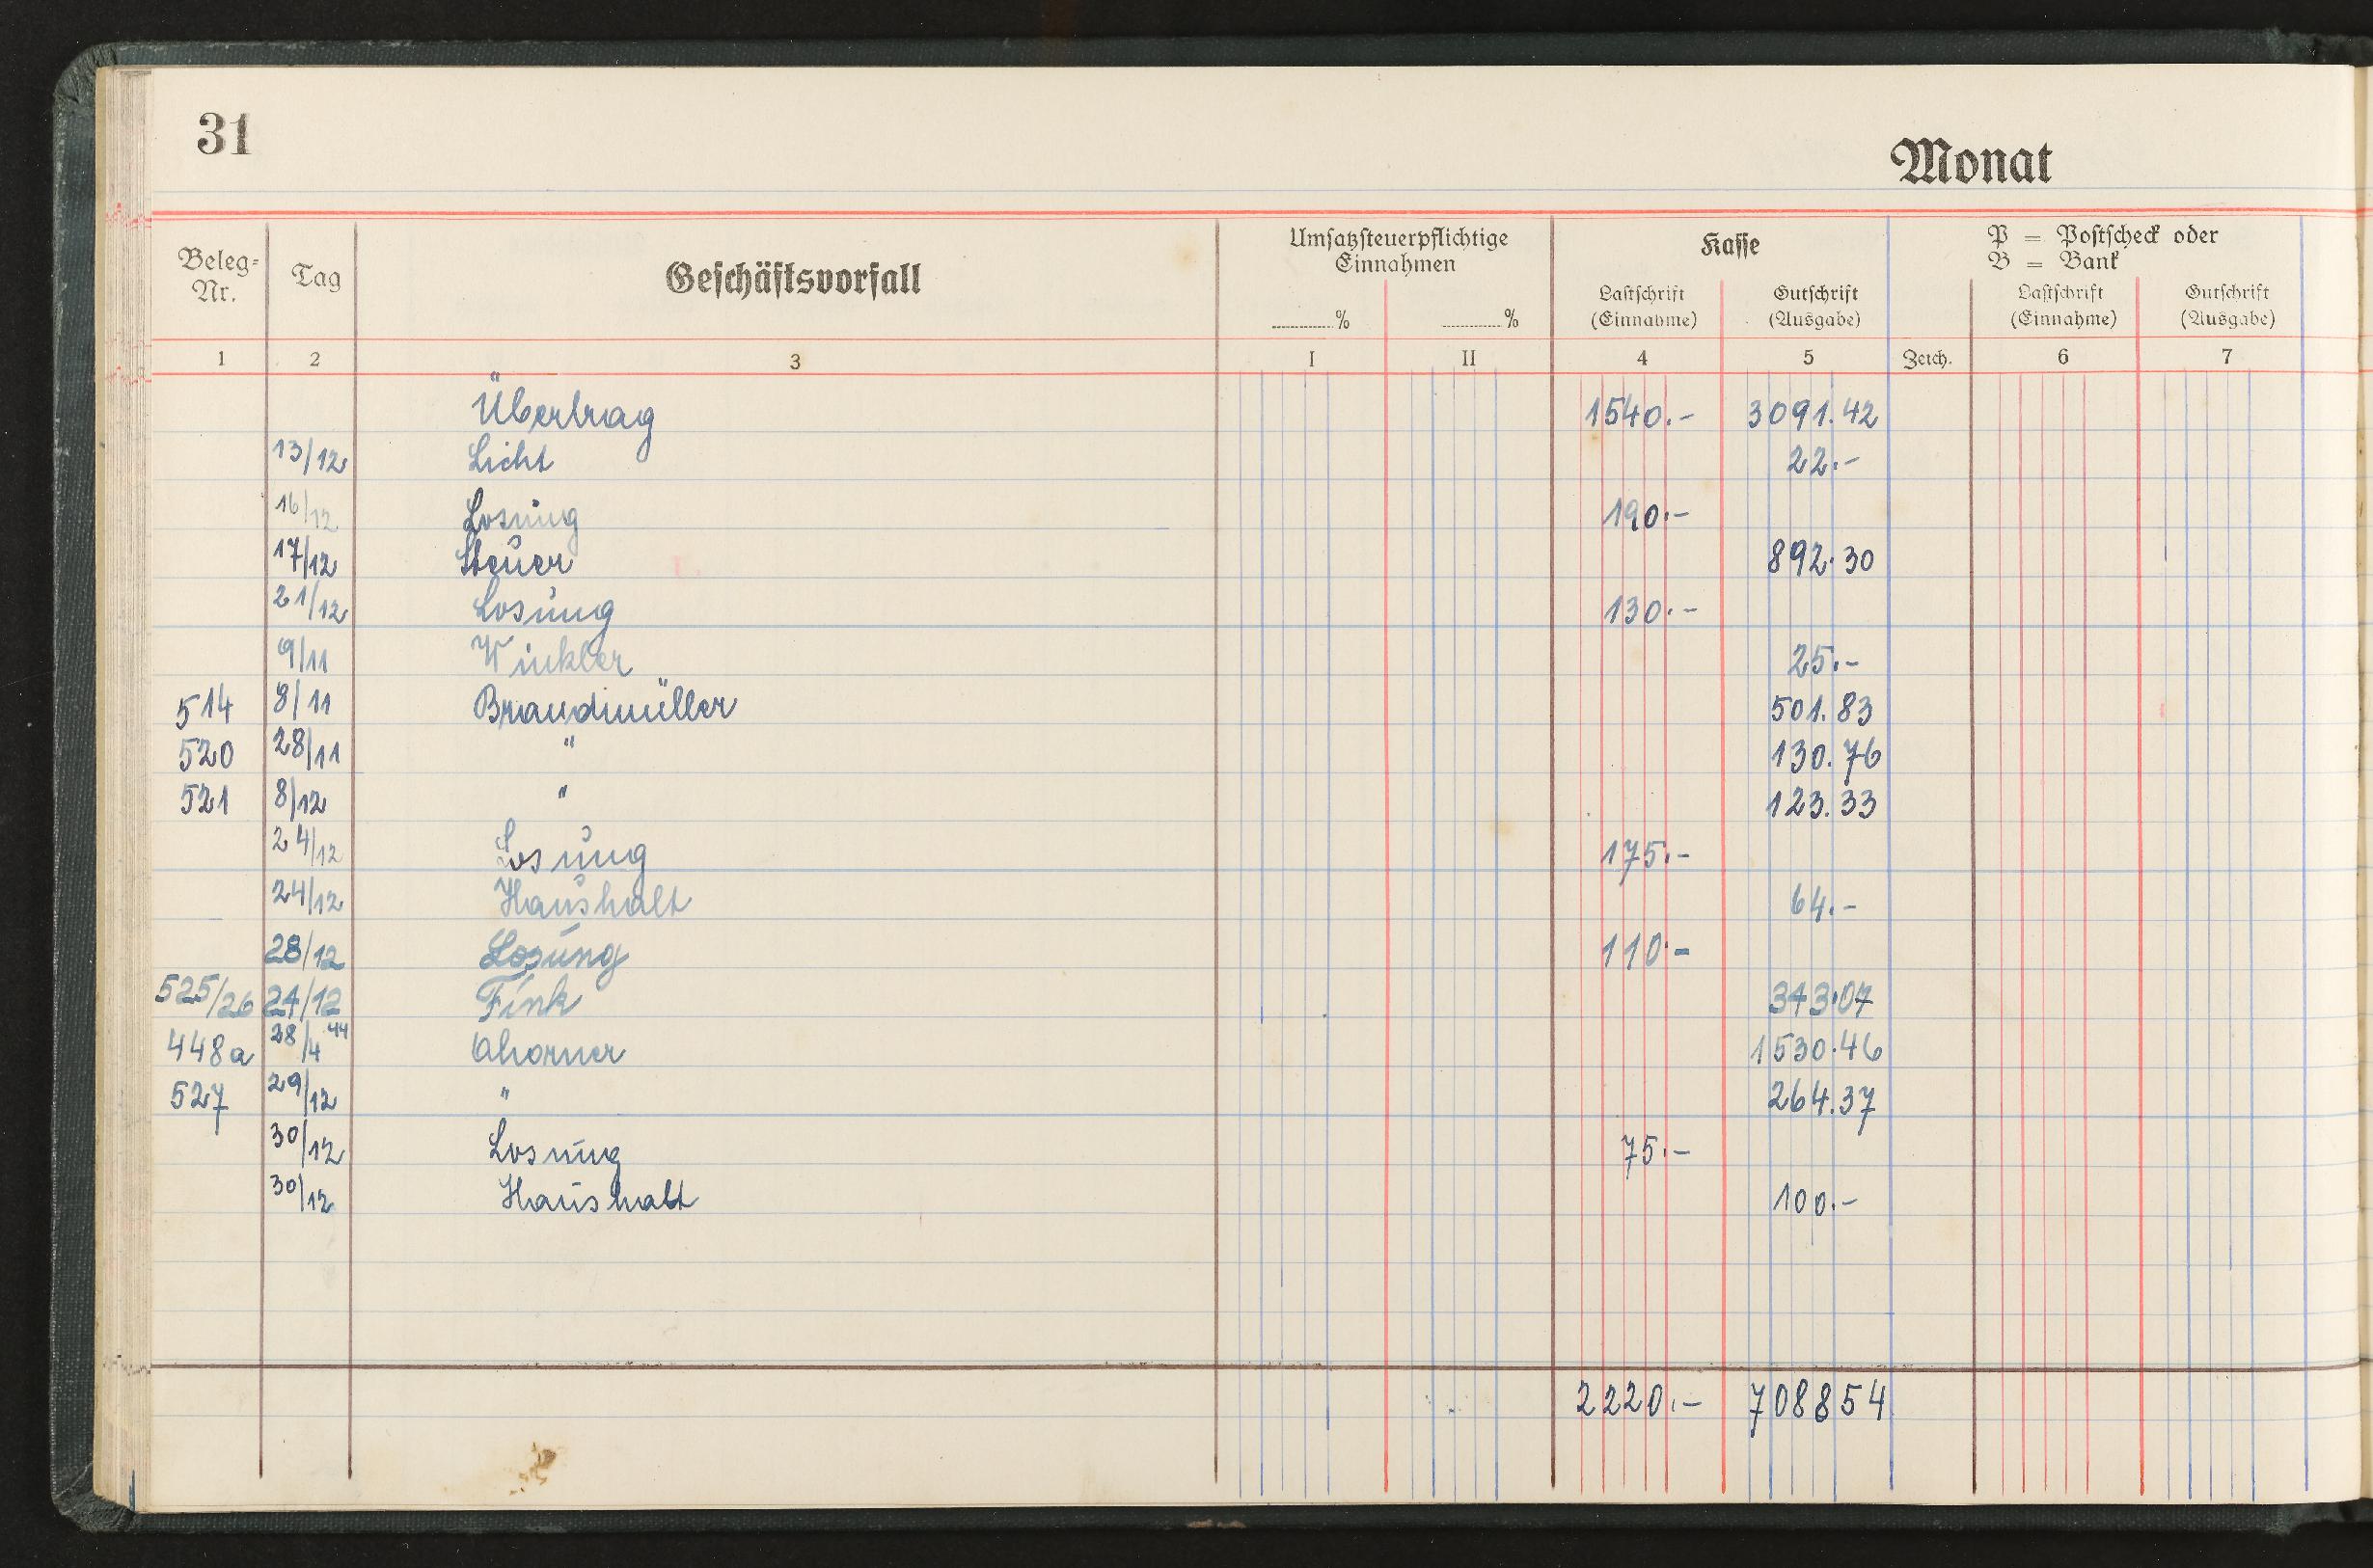 31
Monat
Beleg-Nr. Tag Geschäftsvorfall Umsatzsteuerpflichtige Einnahmen Kasse P = Postscheck oder B = Bank
% % Lastschrift (Einnahme) Gutschrift (Ausgabe) Lastschrift (Einnahme) Gutschrift (Ausgabe)
1 2 3 I II 4 5 Zeich. 6 7
Übertrag 1540.- 3091.42
13/12 Licht 22.-
16/12 Losung 190.-
17/12 Steuer 892.30
21/12 Losung 130.-
9/11 Winkler 25.-
514 8/11 Brandmüller 501.83
520 28/11 " 130.76
521 8/12 " 123.33
24/12 Losung 175.-
24/12 Haushalt 64.-
28/12 Losung 110.-
525/26 24/12 Fink 343.07
448a 28/4 44 Ahorner 1530.46
527 29/12 " 264.37
30/12 Losung 75.-
30/12 Haushalt 100.-
2220.- 708854